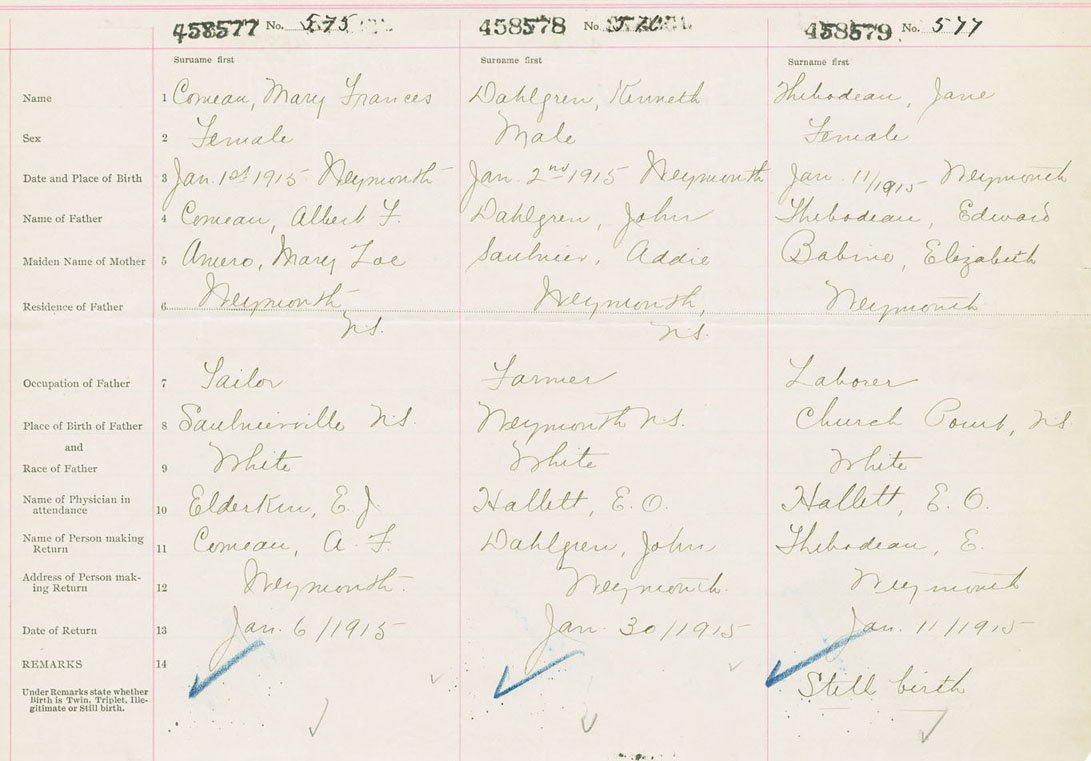 458577 No. 575 458578 No. 576 458579 No. 577
Surname first Surname first Surname first
Name 1 Comeau, Mary Frances Dahlgren, Kenneth Thibodeau, Jane
Sex 2 Female Male Female
Date and Place of Birth 3 Jan. 1st 1915 Weymouth Jan. 2nd 1915 Weymouth Jan. 11/1915 Weymouth
Name of Father 4 Comeau, Albert F. Dahlgren, John Thibodeau, Edward
Maiden Name of Mother 5 Amero, Mary Zoe Saulnier, Addie Babine, Elizabeth
Residence of Father 6 Weymouth Weymouth, Weymouth
N.S. N.S.
Occupation of Father 7 Sailor Farmer Laborer
Place of Birth of Father 8 Saulnierville N.S. Weymouth N.S. Church Point, N.S
and
Race of Father 9 White White White
Name of Physician in
attendance 10 Elderkin, E. J. Hallett, E. O. Hallett, E. O.
Name of Person making
Return 11 Comeau, A. F. Dahlgren, John Thibodeau, E.
Address of Person mak-
ing Return 12 Weymouth. Weymouth. Weymouth
Date of Return 13 Jan. 6/1915 Jan. 30/1915 Jan. 11/1915
REMARKS 14
Under Remarks state whether Still birth
Birth is Twin, Triplet, Ille-
gitimate or Still birth.